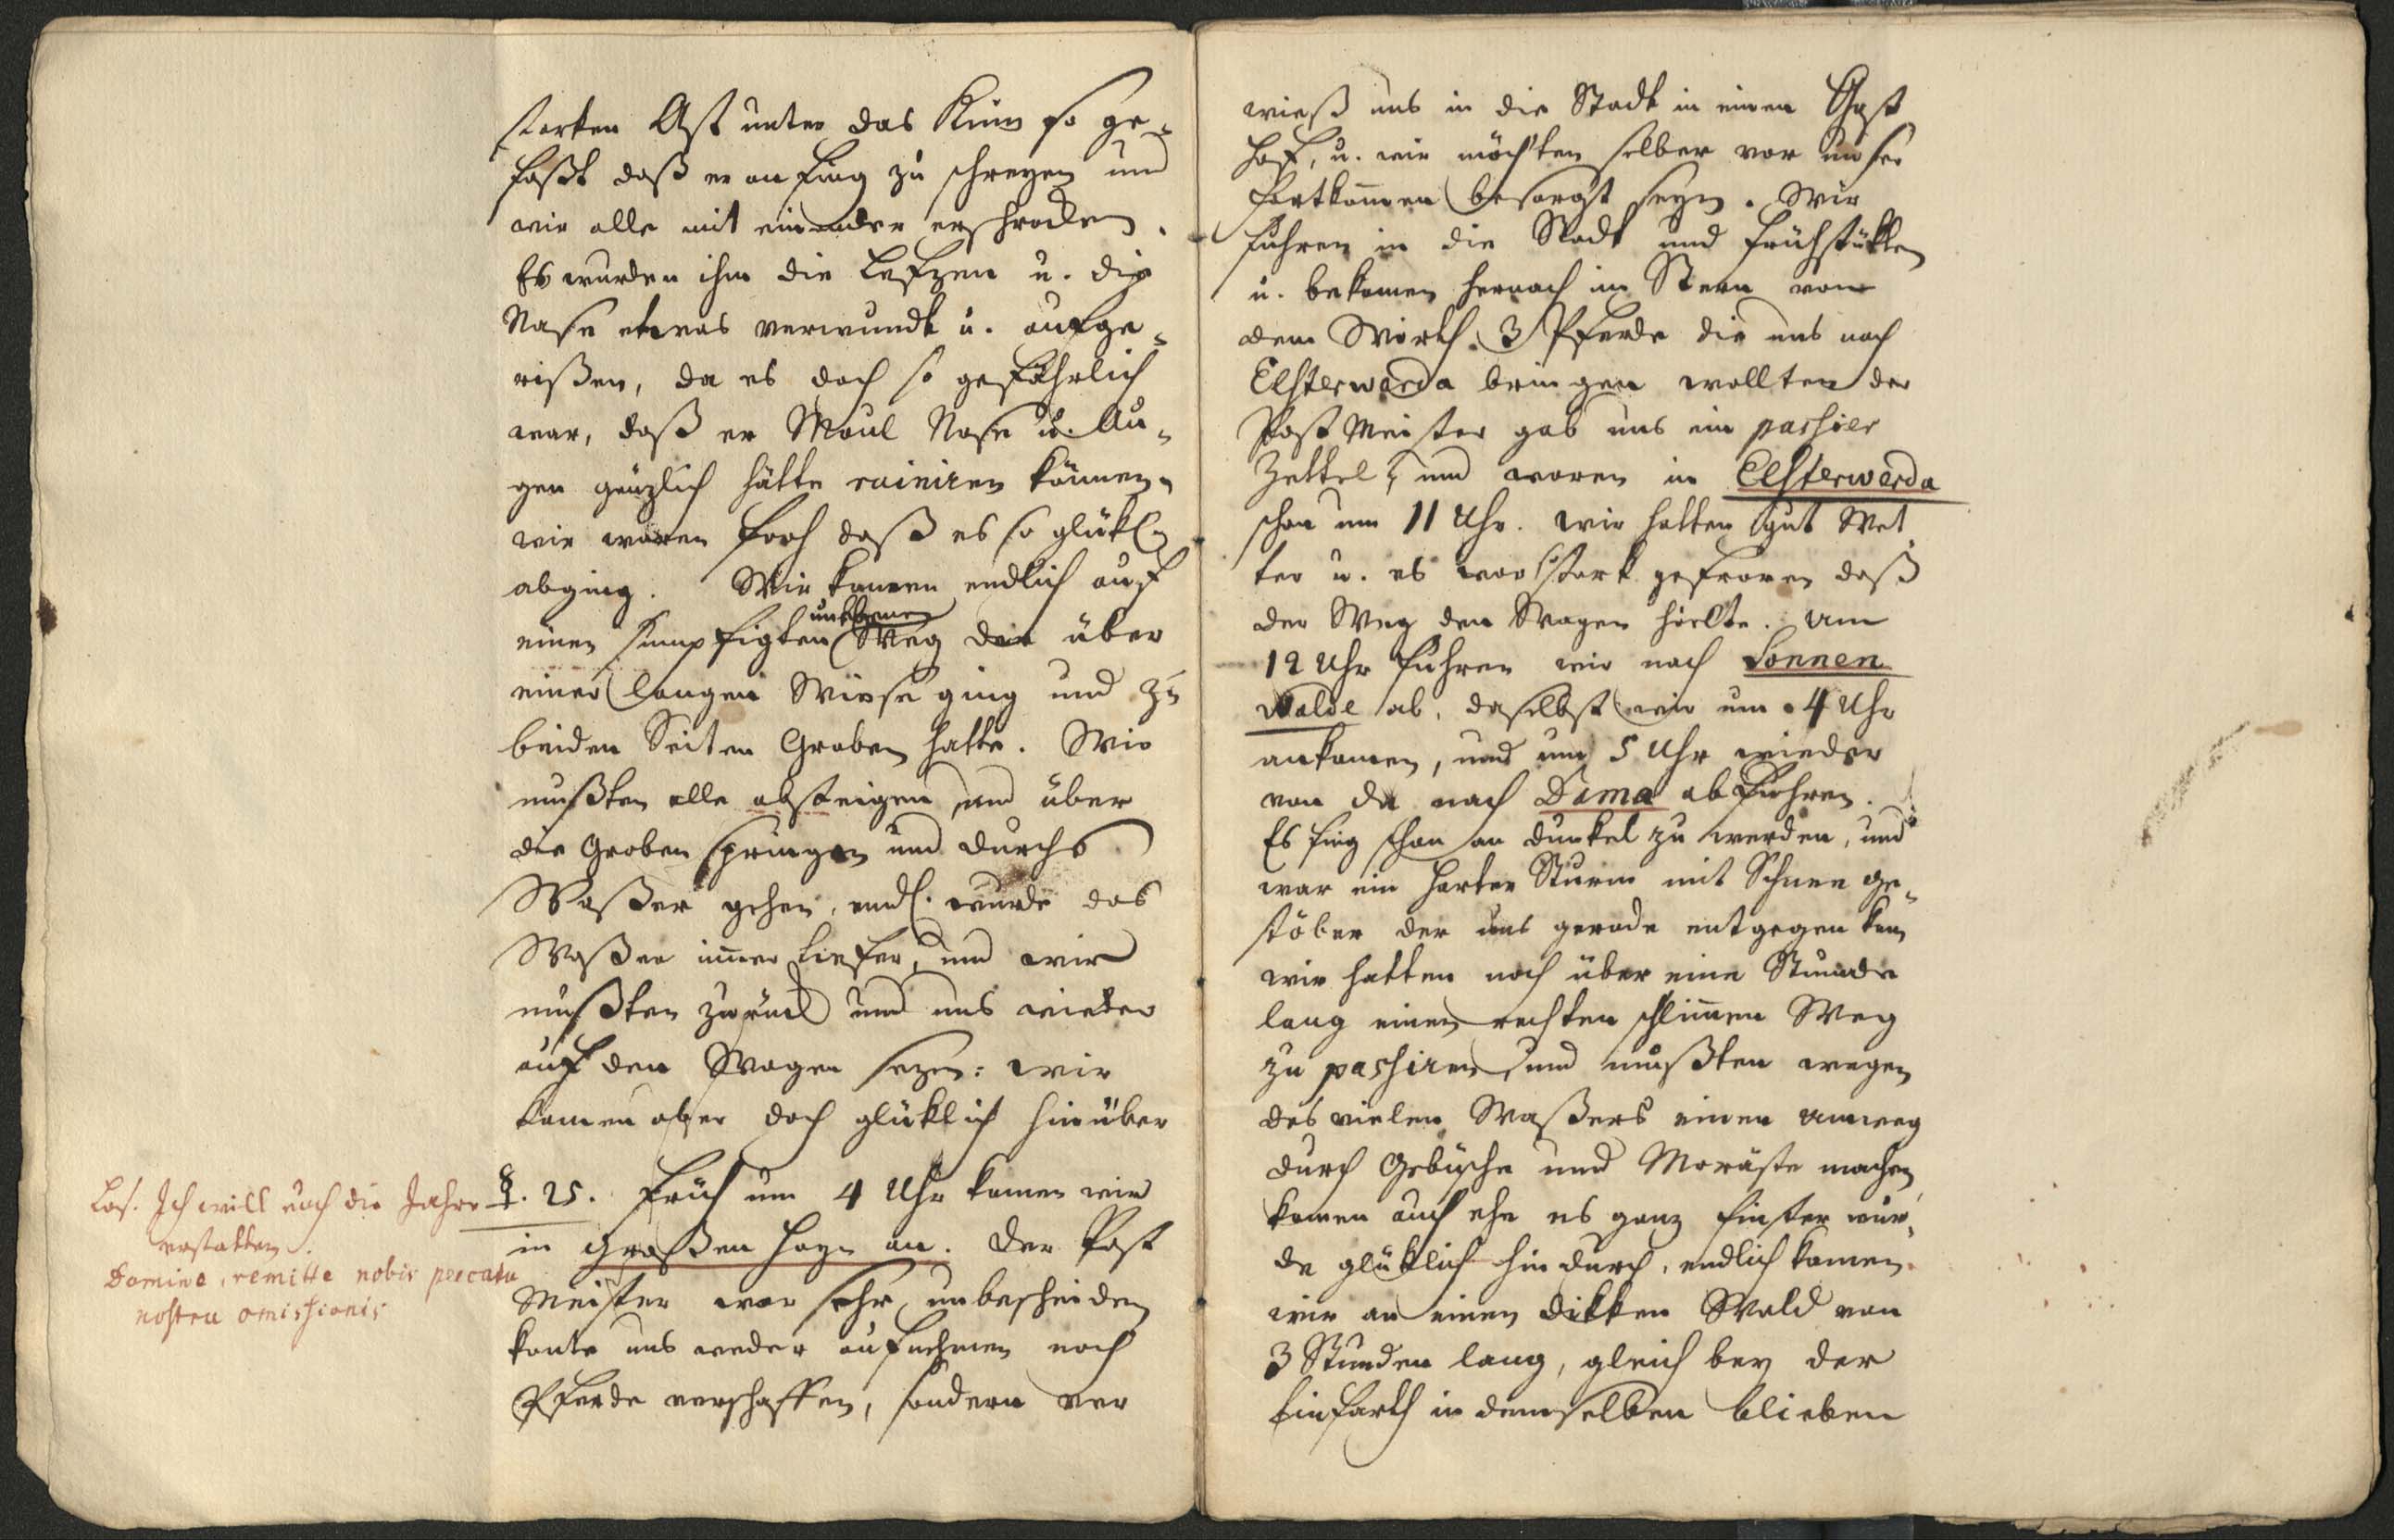 starken Ast unter das Kinn so ge-
faßt daß er anfing zu schreyen und
wir alle mit einander erschrocken.
Es wurden ihm die Lefzen u. die
Nase etwas verwundt u. aufge-
rißen, da es doch so gefährlich
war, daß er Maul Nase u. Au-
gen gänzlich hätte ruiniren können.
wir waren froh daß es so glükl.
abging. Wir kamen endlich auf
einen sumpfigten Weg der über
einer langen Wiese ging und zu
beiden Seiten Graben hatte. Wir
mußten alle absteigen und über
die Graben springen und durchs
Waßer gehen, endl. wurde das
Waßer im̄er tiefer, und wir
mußten zurück und uns wieder
auf den Wagen sezen: wir
kamen aber doch glüklich hinüber
☿. 25. Früh um 4 Uhr kamen wir
in Großen Hayn an. Der Post
Meister war sehr unbescheiden
konte uns weder aufnehmen noch
Pferde verschaffen, sondern ver
Los. Ich will euch die Jahre
erstatten.
Domine, remitte nobis peccata
nostra omissionis
wieß uns in die Stadt in einen Gast
hof, u. wir möchten selber vor unser
Fortkom̄en besorgt seyn. Wir
fuhren in die Stadt und frühstükten
u. bekamen hernach im Stern von
dem Wirth 3 Pferde die uns nach
Elsterwerda bringen wollten der
Post Meister gab uns ein passier
Zettel, und waren in Elsterwerda
schon um 11 Uhr. wir hatten gut Wet
ter u. es war so stark gefroren daß
der Weg den Wagen hielte. Um
12 Uhr fuhren wir nach Sonnen
walde ab, daselbst wir um 4 Uhr
ankamen, und um 5 Uhr wieder
von da nach Dama abfuhren.
Es fing schon an dunkel zu werden, und
war ein harter Sturm mit Schnee ge-
stöber der uns gerade entgegen kam
wir hatten noch über eine Stunde
lang einen rechten schlim̄en Weg
zu passiren und mußten wegen
des vielen Waßers einen Umweg
durch Gebüsche und Moräste machen
kamen auch ehe es ganz finster wur-
de glüklich hindurch, endlich kamen
wir an einen dikken Wald von
3 Stunden lang, gleich bey der
Einfarth in demselben blieben